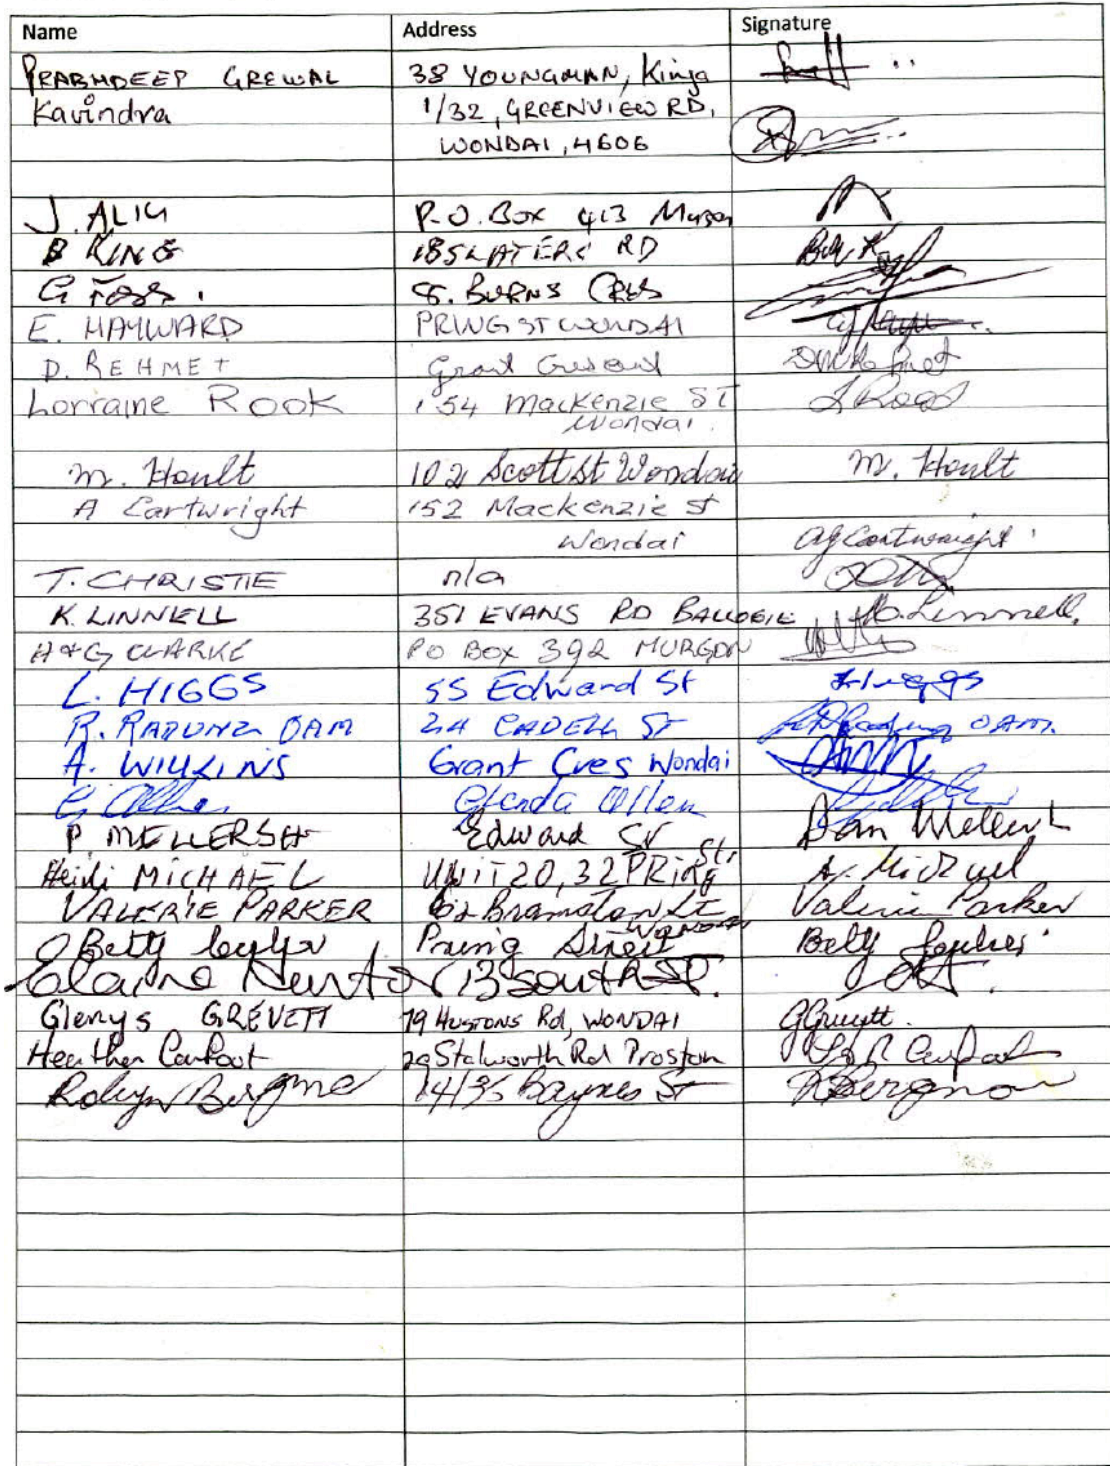 Name Address Signature
PRABHDEEP GREWAL 38 YOUNGMAN, Kinga
Kavindra 1/32, GREENVIEW RD,
WONDAI, 4606
J. ALIG P.O. Box 413 Murgon
B KING 18 SLATERS RD
G 8. BURNS CRES
E. HAYWARD PRING ST WONDAI
D. REHMET Grant Crescent
Lorraine Rook 154 Mackenzie ST L Rook
Wondai.
M. Hoult 102 Scott St Wondai M. Hoult
A Cartwright 152 Mackenzie st
Wondai AG Cartwright
T. CHRISTIE n/a
K. LINNELL 351 EVANS RD BALLOGIE K. Linnell
H & G CLARKE PO BOX 392 MURGON
L. HIGGS 55 Edward St L Higgs
R. RADUNZ OAM 24 CADELL ST OAM.
A. WILKINS Grant Cres Wondai
G Allen Glenda Allen
P MELLERSH Edward ST Mellersh
Heidi MICHAEL UNIT 20, 32 PRING St. H. Michael
VALERIE PARKER 62 Bramston St Wondai Valerie Parker
Betty Pring Street Betty
Elaine Newton 13 South St.
Glenys GREVETT 79 HUSTONS Rd, WONDAI G Grevett.
Heather Carfoot 29 Stalworth Rd Proston Carfoot
Robyn 14/35 Baynes St